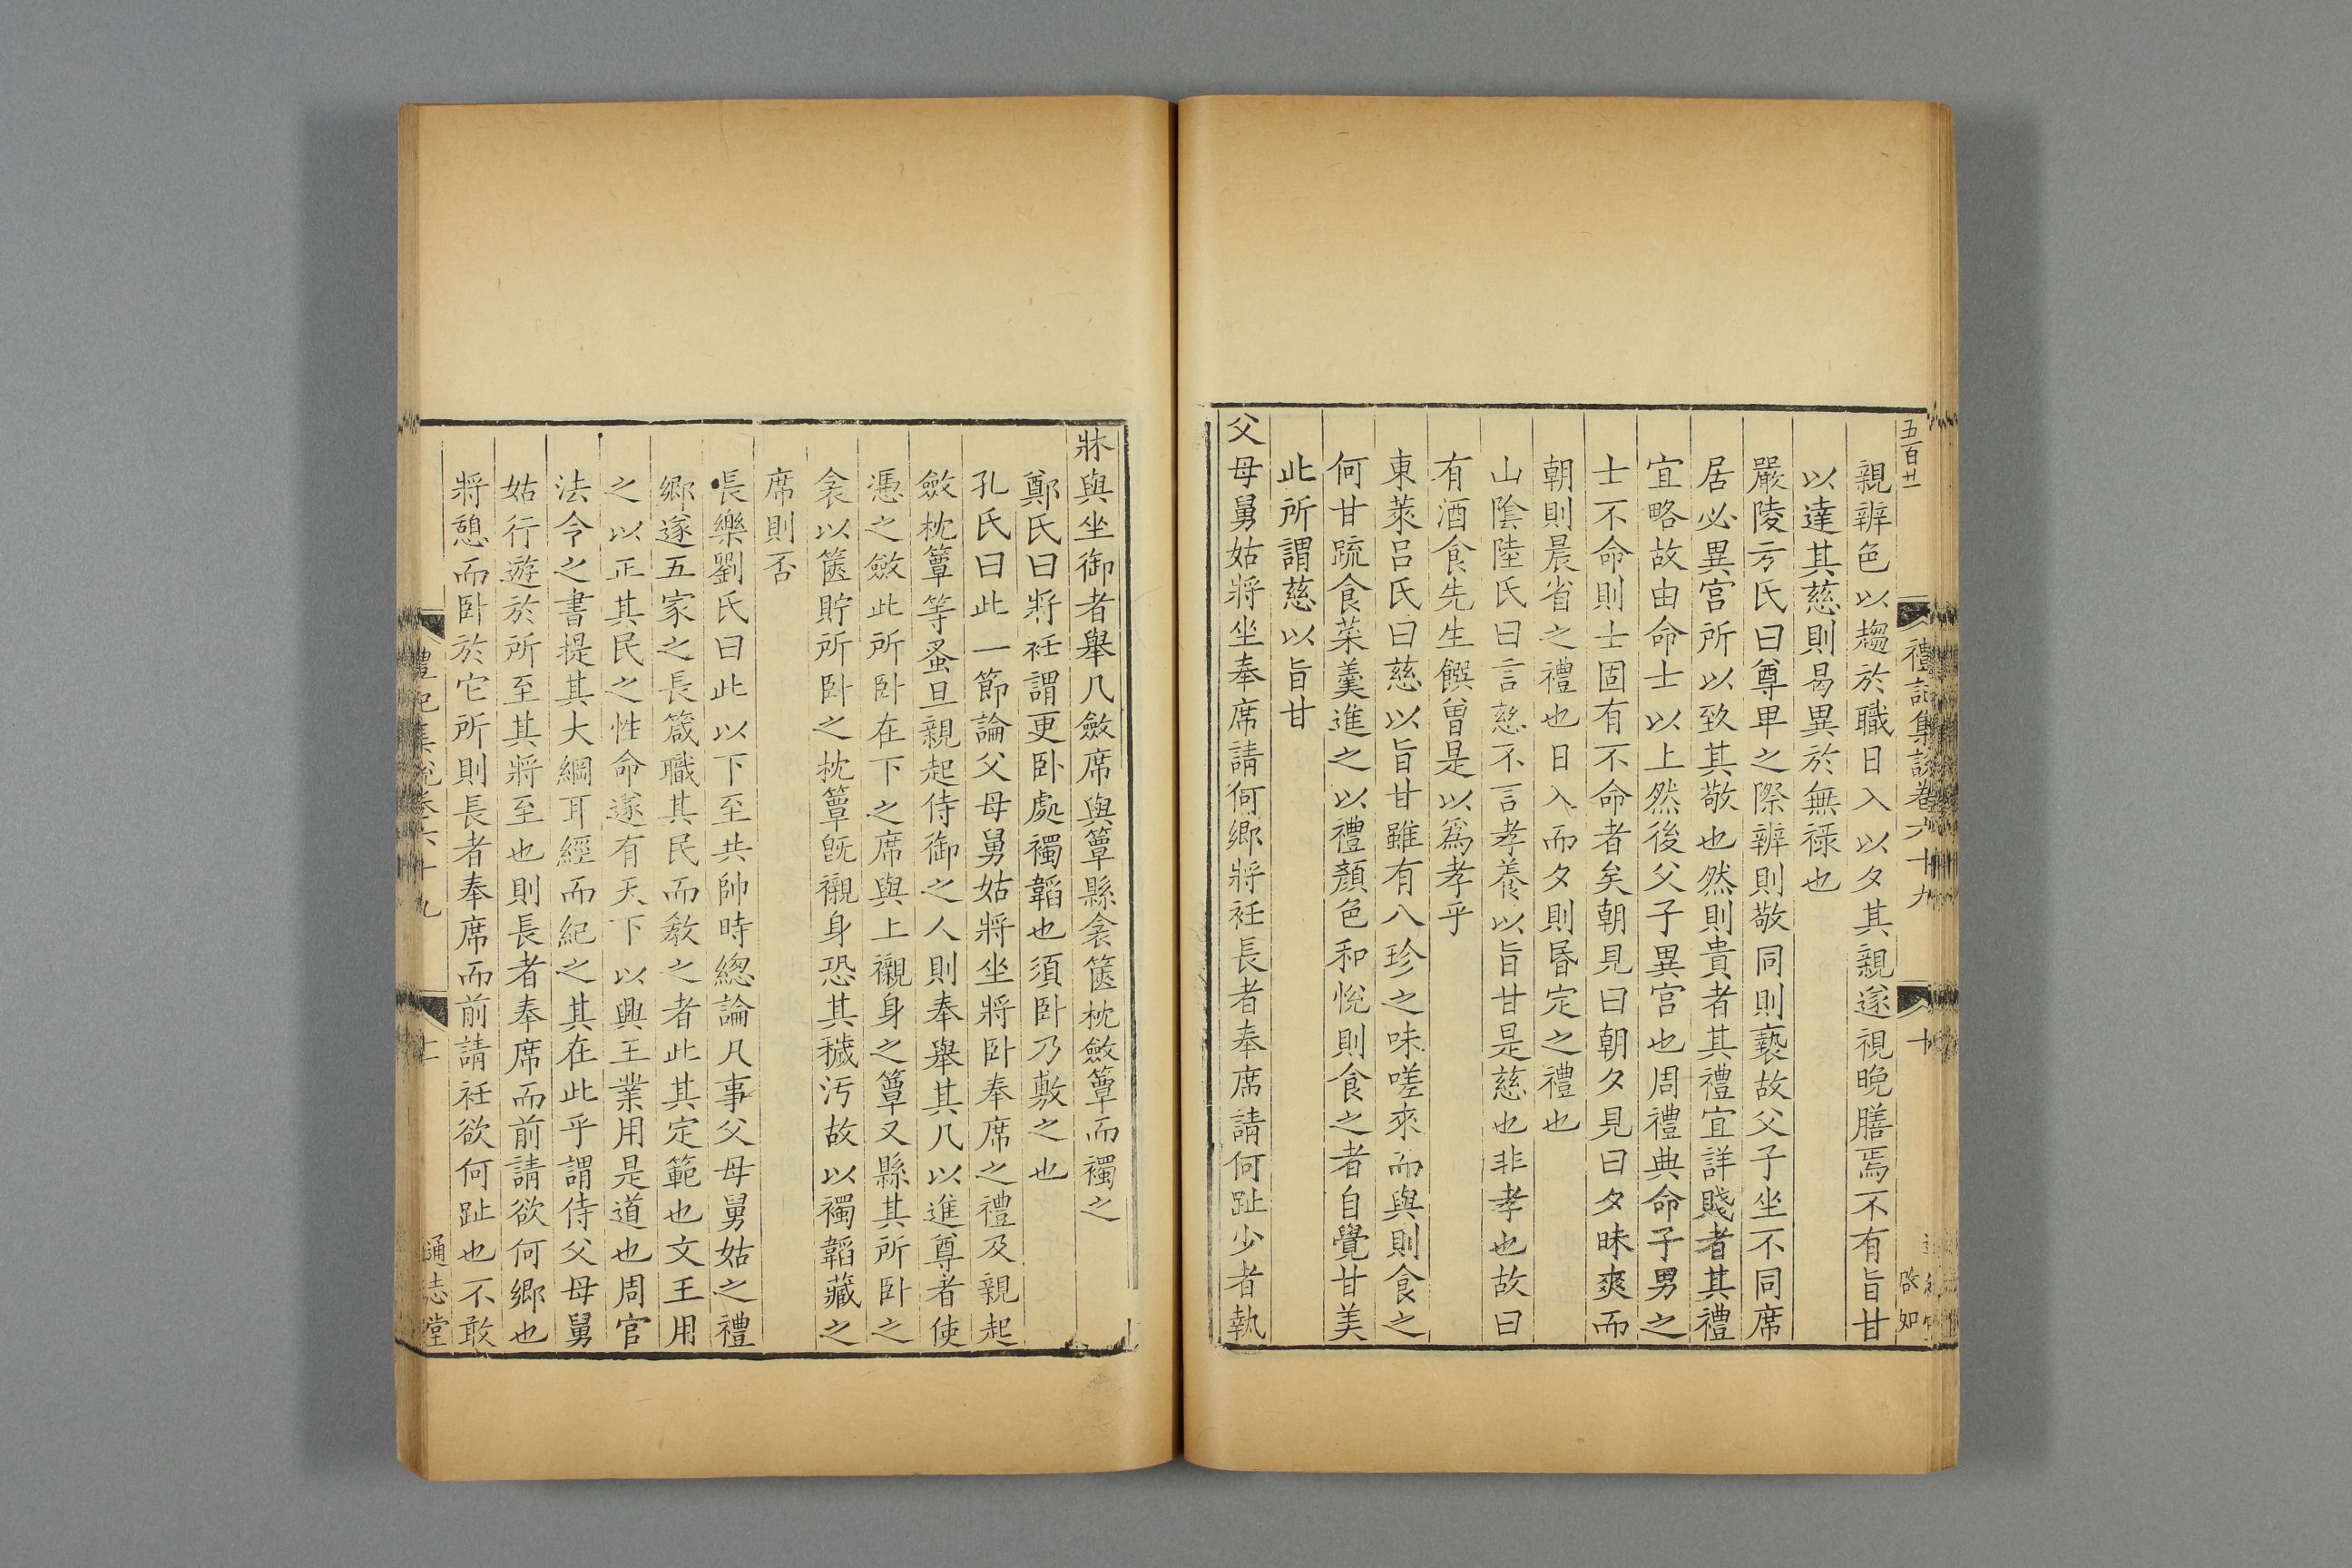 五百廿一
禮記集說卷六十九
十
啓如
親辨色以趨於職日入以夕其親遂視晚膳焉不有旨甘
以達其慈則曷異於無祿也
嚴陵方氏曰尊卑之際辨則敬同則褻故父子坐不同席
居必異宮所以致其敬也然則貴者其禮宜詳賤者其禮
宜略故由命士以上然後父子異宮也周禮典命子男之
士不命則士固有不命者矣朝見曰朝夕見曰夕昧爽而
朝則晨省之禮也日入而夕則昬定之禮也
山陰陸氏曰言慈不言孝養以旨甘是慈也非孝也故曰
有酒食先生饌曾是以爲孝乎
東萊呂氏曰慈以旨甘雖有八珍之味嗟來而與則食之
何甘疏食菜羹進之以禮顏色和悅則食之者自覺甘美
此所謂慈以旨甘
父母舅姑將坐奉席請何鄉將衽長者奉席請何趾少者執
牀與坐御者舉几斂席與簟縣衾篋枕斂簟而襡之
鄭氏曰將衽謂更卧處襡韜也須卧乃敷之也
孔氏曰此一節論父母舅姑將坐將卧奉席之禮及親起
斂枕簟等蚤旦親起侍御之人則奉舉其几以進尊者使
憑之斂此所卧在下之席與上襯身之簟又縣其所卧之
衾以篋貯所卧之枕簟旣襯身恐其穢汚故以襡韜藏之
席則否
長樂劉氏曰此以下至共帥時緫論凡事父母舅姑之禮
鄉遂五家之長箴職其民而敎之者此其定範也文王用
之以正其民之性命遂有天下以興王業用是道也周官
法令之書提其大綱耳經而紀之其在此乎謂侍父母舅
姑行遊於所至其將至也則長者奉席而前請欲何鄉也
將憩而卧於它所則長者奉席而前請衽欲何趾也不敢
禮記集說卷六十九
通志堂